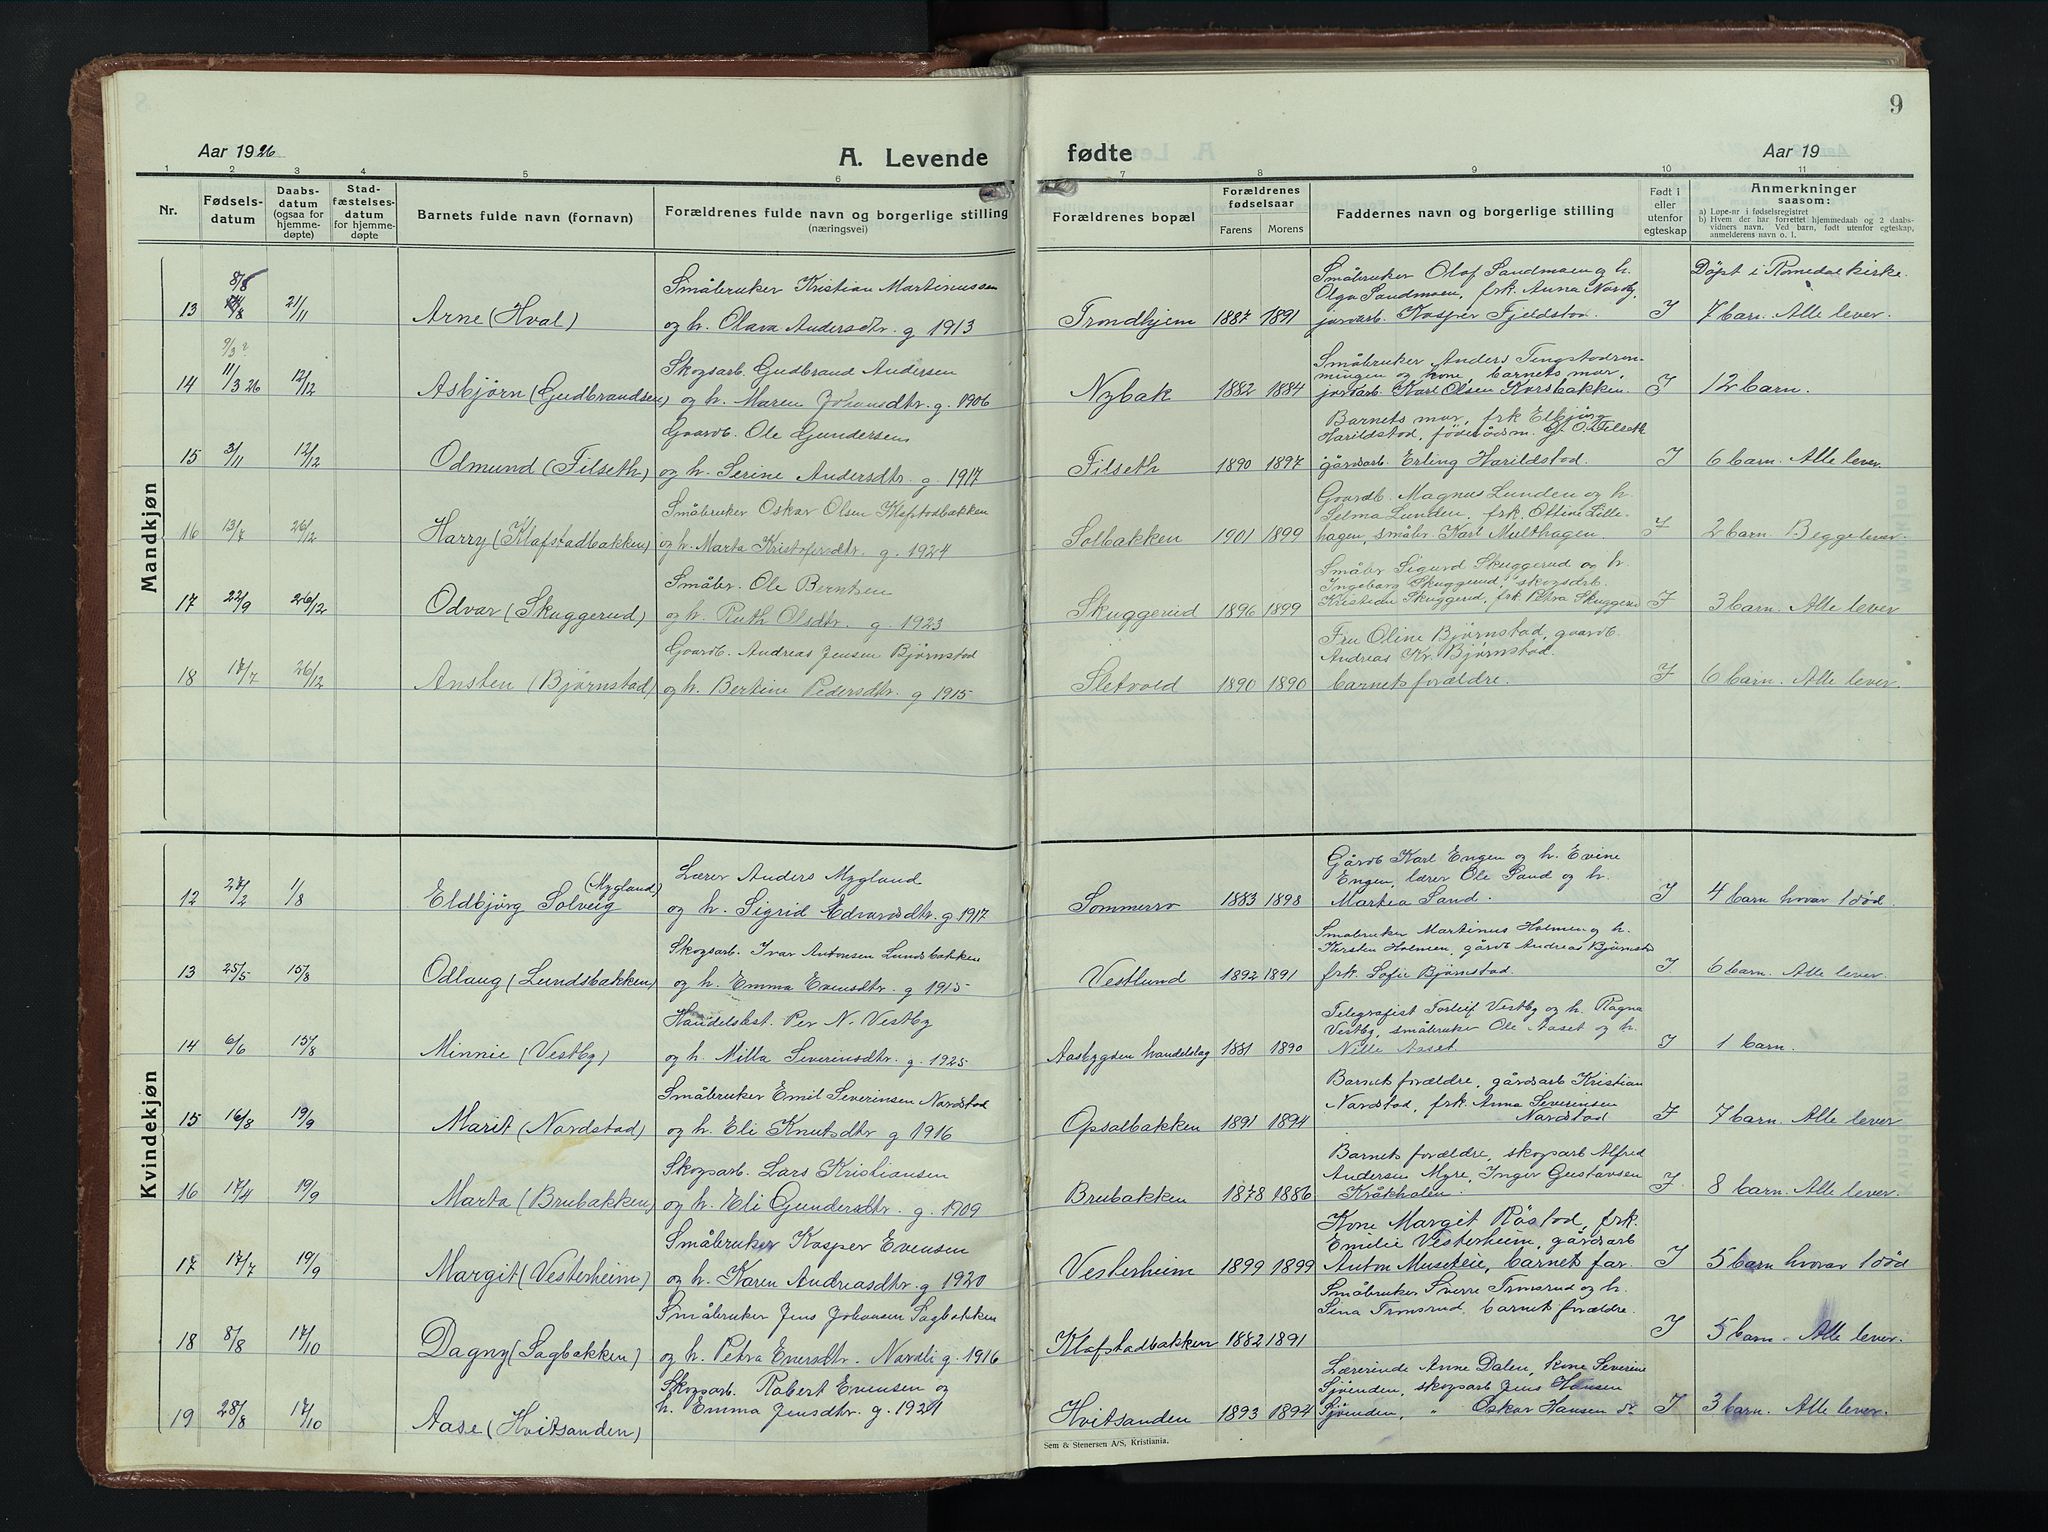 9
Aar 1926
A. Levende
fødte
Aar 19
1 2 3 4 5 6 7 8 9 10 11
Nr.
Fødsels-
datum
Daabs-
datum
(ogsaa for
hjemme-
døpte)
Stad-
fæstelses-
datum
for hjemme-
døpte
Barnets fulde navn (fornavn)
Forældrenes fulde navn og borgerlige stilling
(næringsvei)
Forældrenes bopæl
Forældrenes
fødselsaar
Farens Morens
Faddernes navn og borgerlige stilling
Født i
eller
utenfor
egteskap
Anmerkninger
saasom:
a) Løpe-nr i fødselsregistret
b) Hvem der har forrettet hjemmedaab og 2 daabs-
vidners navn. Ved barn, født utenfor egteskap,
anmelderens navn o. l.
Mandkjøn
8/8
Småbruker Kristian Martinussen
Småbruker Olaf Sandmoen og h.
Døpt i Romedal kirke.
Olga Sandmoen, frk. Anna Nordby,
13 21/11 Arne (Hval) og h. Olava Andersdtr. g 1913 Trondhjem 1887 1891 jordarb. Kasper Fjeldstad. I 7 barn. Alle lever.
9/3?
Skogsarb. Gudbrand Andersen
Småbruker Anders Tingstadren-
mingen og kone, barnets mor,
14 11/3 26 12/12 Asbjørn (Gudbrandsen) og h. Maren Johansdtr. g. 1906 Nybak 1882 1884 jordarb. Karl Olsen Korsbakken. I 12 barn.
Gaardb. Ole Gundersen
Barnets mor, frk Elbjørg
Harildstad, føderådsm. G. O. Filseth
15 3/11 12/12 Odmund (Filseth) og h. Serine Andersdtr. g. 1917 Filseth 1890 1897 gårdsarb. Erling Harildstad. I 6 barn. Alle lever.
Småbruker Oskar Olsen Klafstadbakken
Gaardb. Magnus Lunden og h.
Selma Lunden, frk. Ottine Lille-
16 13/7 26/12 Harry (Klafstadbakken) og h. Marta Kristofersdtr. g. 1924 Solbakken 1901 1899 hagen, småbr. Karl Multhagen. I 2 barn. Begge lever.
Småbr. Ole Berntsen
Småbr Sigurd Skuggerud og h.
Ingeborg Skuggerud, skogsarb.
17 22/9 26/12 Odvar (Skuggerud) og h. Ruth Olsdtr. g. 1923 Skuggerud 1896 1899 Kristian Skuggerud, frk. Petra Skuggerud I 3 barn. Alle lever
Gaardb. Andreas Jensen Bjørnstad
Fru Oline Bjørnstad, gaardb.
Andreas Kr. Bjørnstad.
18 17/7 26/12 Ansten (Bjørnstad) og h. Bertine Pedersdtr. g 1915 Sletvold 1890 1890 barnets forældre. I 6 barn. Alle lever.
Kvindekjøn
Lærer Anders Mygland
Gårdb Karl Engen og h. Evine
(Mygland)
Engen, lærer Ole Sand og h.
12 27/2 1/8 Eldbjörg Solveig og h. Sigrid Edvardsdtr. g. 1917 Sommerro 1883 1898 Martea Sand. I 4 barn hvorav 1 død.
Skogsarb. Ivar Antonsen Lundsbakken
Småbruker Martinus Holmen og h.
Kirsten Holmen, gårdb Andreas Bjørnstad
13 25/5 15/8 Odlaug (Lundsbakken) og h. Emma Evensdtr. g 1915 Vestlund 1892 1891 frk. Sofie Bjørnstad. I 6 barn. Alle lever.
Handelsbest. Per N. Vestby
Telegrafist Torleif Vestby og h. Ragna
Vestby, småbruker Ole Aaset og h.
14 6/6 15/8 Minnie (Vestby) og h. Milla Severinsdtr. g 1925 Aasbygden handelslag 1881 1890 Nille Aaset. I 1 barn.
Småbruker Emil Severinsen Nordstad
Barnets forældre, gårdsarb Kristian
Nordstad, frk. Anna Severinsen
15 16/8 19/9 Marit (Nordstad) og h. Eli Knutsdtr g 1916 Opsalbakken 1891 1894 Nordstad I 7 barn. Alle lever
Skogsarb. Lars Kristiansen
Barnets forældre, skogsarb Alfred
Andersen Myre, Inger Gustavsen
16 17/4 19/9 Marta (Brubakken) og h. Eli Gundersdtr. g. 1909 Brubakken 1878 1886 Kråkholen. I 8 barn. Alle lever.
Småbruker Kasper Evensen
Kone Margit Røstad, frk.
Emilie Vesterheim, gårdsarb
17 17/7 19/9 Margit (Vesterheim) og h. Karen Andreasdtr. g 1920 Vesterheim 1899 1899 Anton Museteie, barnets far. I 5 barn hvorav 1 død
Småbruker Jens Johansen Sagbakken
Småbruker Sverre Tronsrud og h.
Sina Tronsrud, barnets forældre.
18 8/8 17/10 Dagny (Sagbakken) og h. Petra Enersdtr. Nordli g. 1916 Klafstadbakken 1882 1891 I 5 barn. Alle lever.
Skogsarb. Robert Evensen og
Lærerinde Anne Dalen, kone Severine
Sjøenden, skogsarb Jens Hansen
19 28/8 17/10 Aase (Hvitsanden) h. Emma Jensdtr. g. 1921 Hvitsanden 1893 1894 Sjøenden, " Oskar Hansen I 3 barn. Alle lever.
Sem & Stenersen A/S, Kristiania.